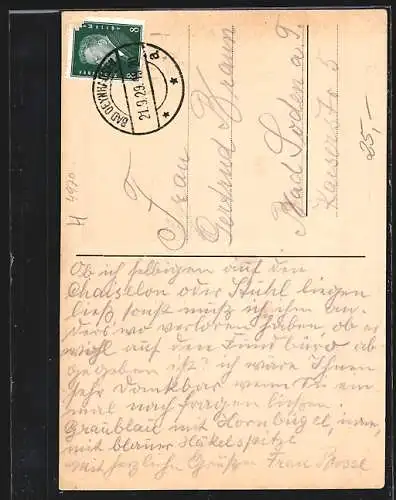 8
BAD OEYNHAUSEN
21.9.29.
a
Frau
Gertrud Braun
Bad Soden a. T.
Kaiserstr. 5
25,-
H 4970
Ob ich selbigen auf den
Chaiselon oder Stuhl liegen
ließ sonst muß ich ihn an-
ders wo verloren haben, ob er
wohl auf den Fundbüro ab-
gegeben ist? ich wäre Ihnen
sehr dankbar wenn Sie ein
mal nach fragen ließen.
Graublau mit Hornbügel, innen
mit blauer Häkelspitze
Mit herzlichen Grüßen Frau Bosse